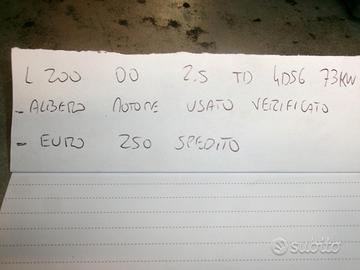 L 200 00 2.5 TD 4D56 73KW
- ALBERO MOTORE USATO VERIFICATO
- EURO 250 SPEDITO
subito